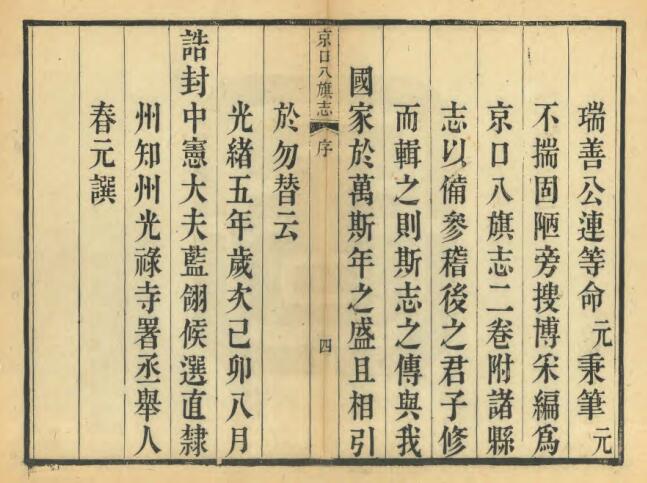 瑞善公連等命元秉筆元
不揣固陋旁搜博宷編爲
京口八旗志二卷附諸縣
志以備參稽後之君子修
而輯之則斯志之傳與我
國家於萬斯年之盛且相引
京口八旗志 序 四
於勿替云
光緒五年歲次己卯八月
誥封中憲大夫藍翎候選直隸
州知州光祿寺署丞舉人
春元譔